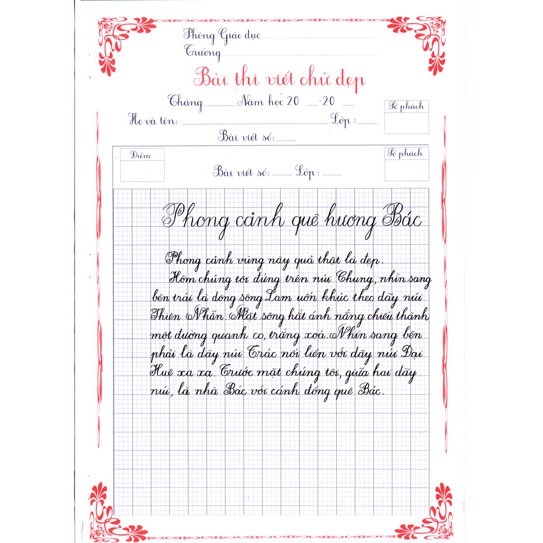 Phòng Giáo dục
Trường
Bài thi viết chữ đẹp
Tháng Năm học 20 -20
Số phách
Họ và tên: Lớp:
Bài viết số:
Điểm
Số phách
Bài viết số: Lớp:
Phong cảnh quê hương Bác
Phong cảnh vùng này quả thật là đẹp.
Hôm chúng tôi đứng trên núi Chung, nhìn sang
bên trái là dòng sông Lam uốn khúc theo dãy núi
Thiên Nhẫn. Mặt sông hắt ánh nắng chiếu thành
một đường quanh co, trắng xoá. Nhìn sang bên
phải là dãy núi Trác nối liền với dãy núi Đại
Huệ xa xa. Trước mặt chúng tôi, giữa hai dãy
núi, là nhà Bác với cánh đồng quê Bác.